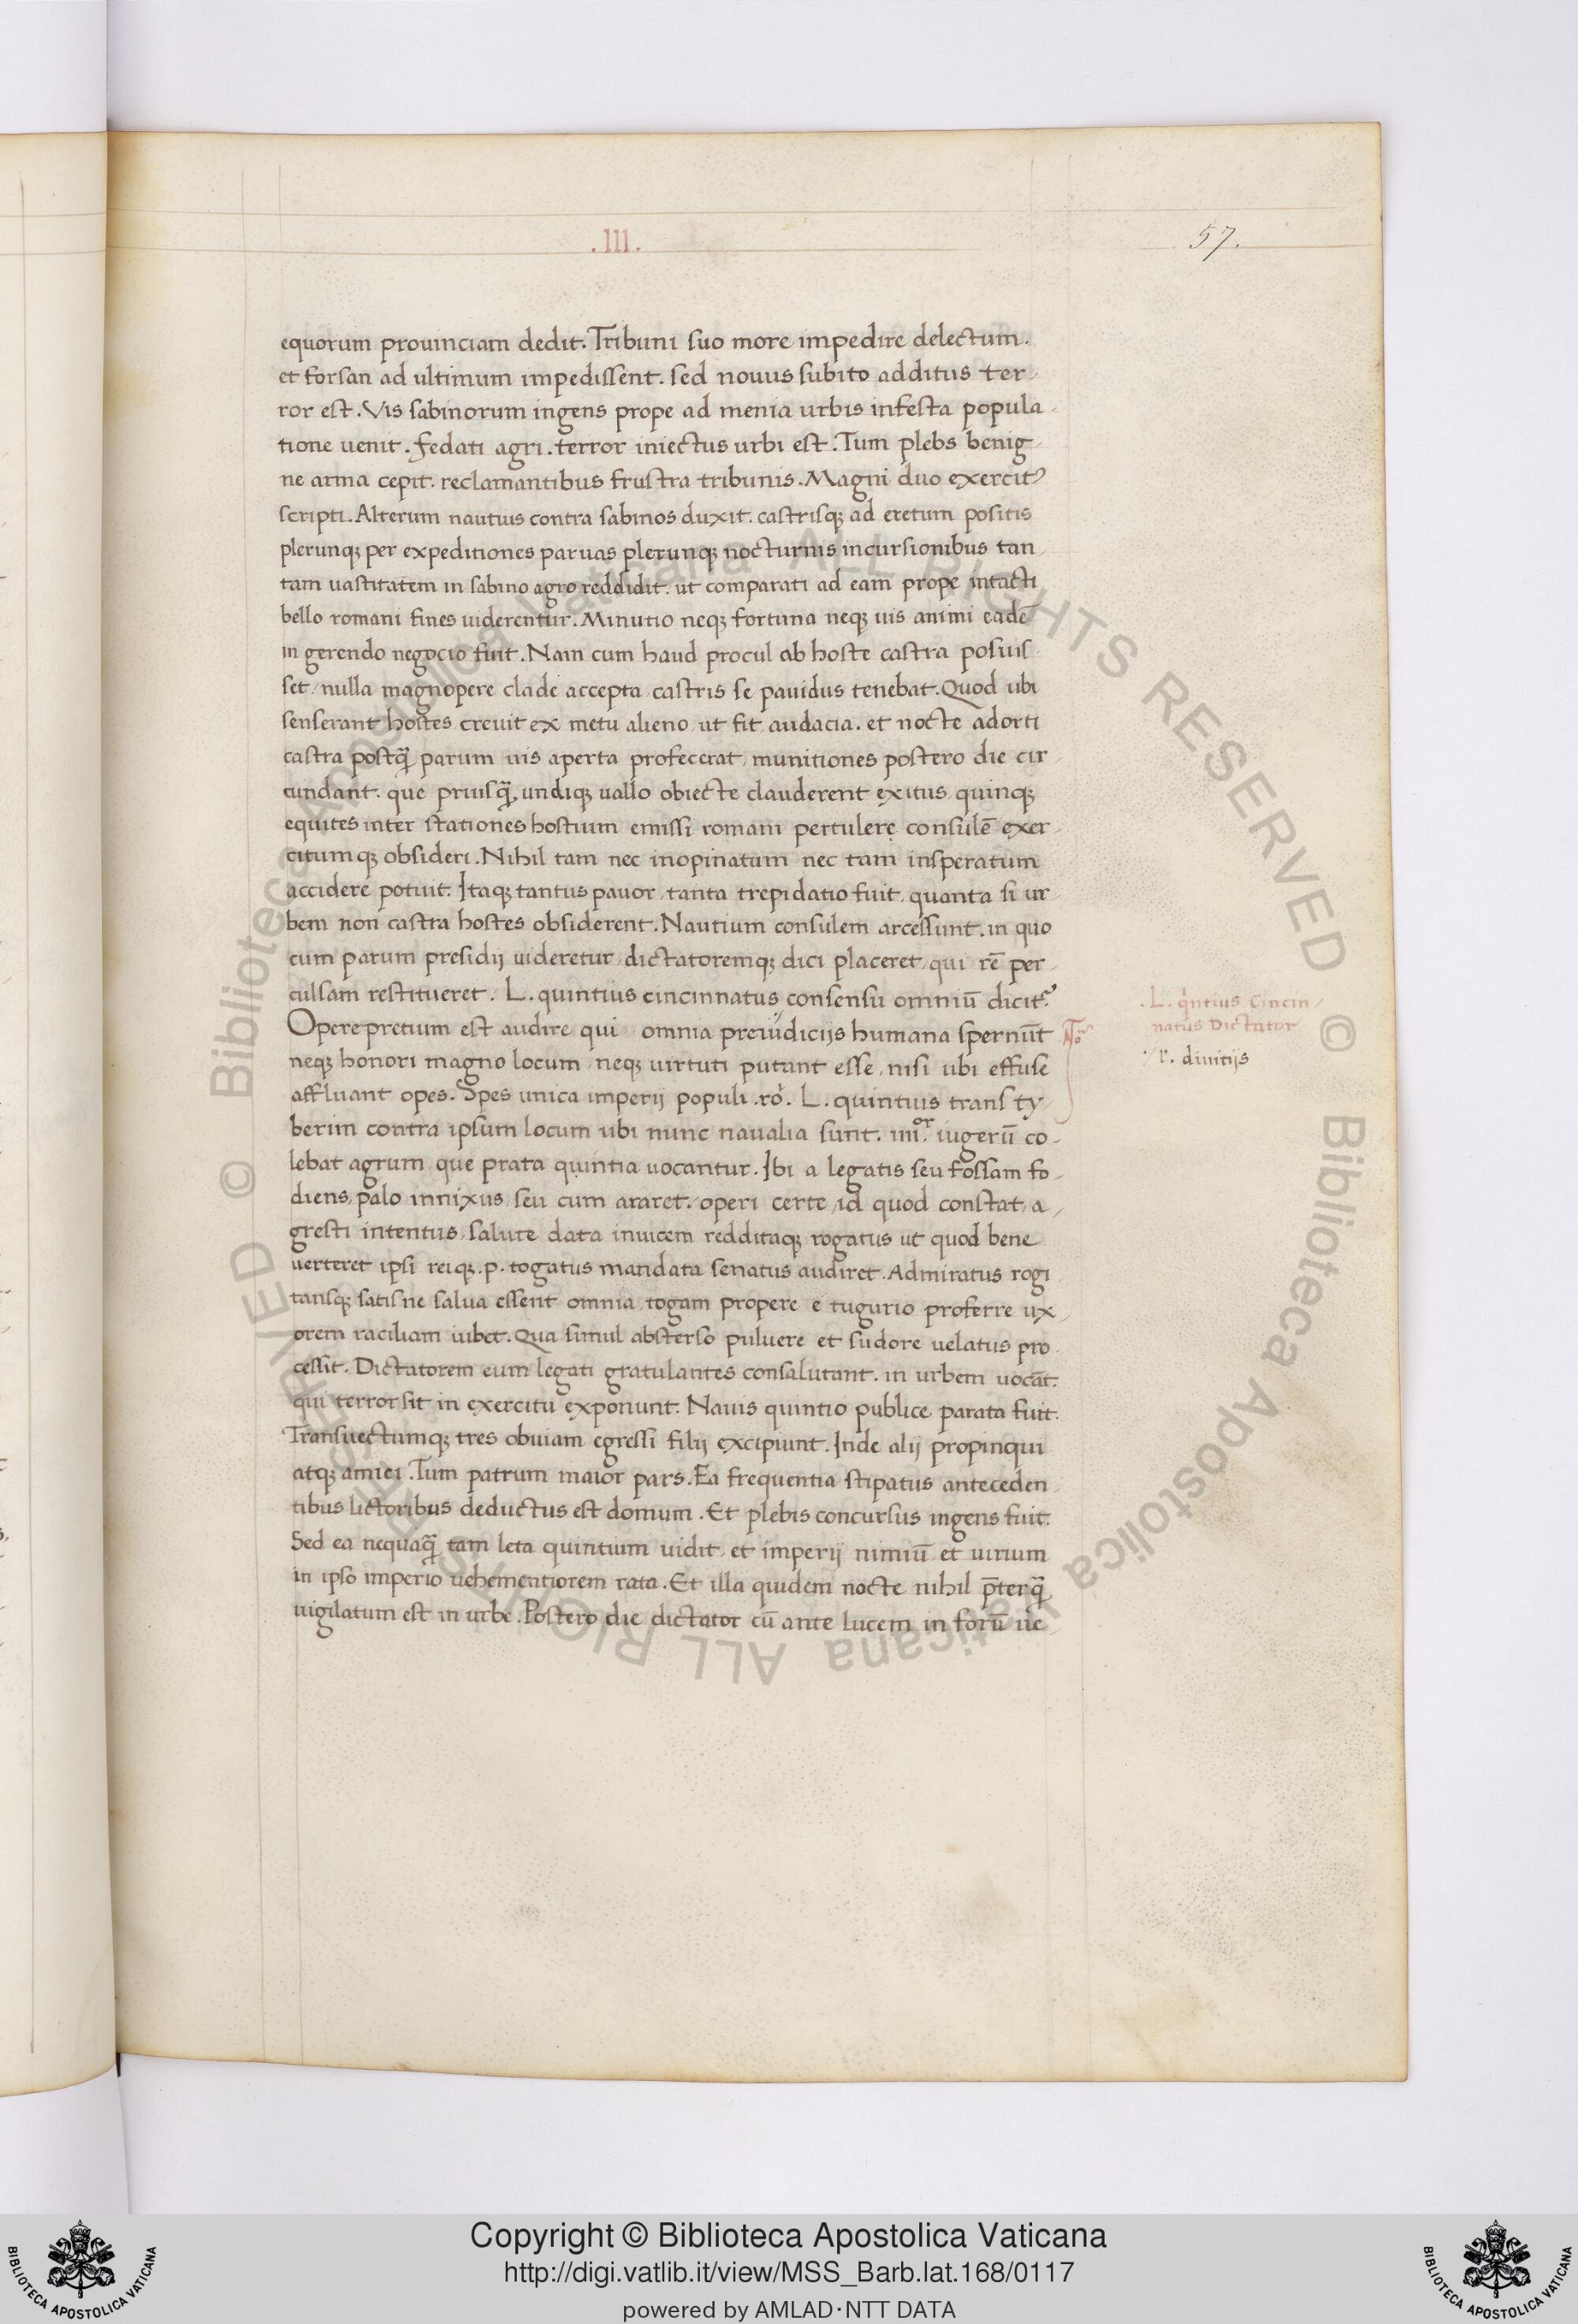 .III.
57.
equorum prouinciam dedit. Tribuni suo more impedire delectum.
et forsan ad ultimum impedissent. sed nouus subito additus ter-
ror est. Vis sabinorum ingens prope ad menia urbis infesta popula-
tione uenit. fedati agri. terror iniectus urbi est. Tum plebs benig-
ne arma cepit. reclamantibus frustra tribunis. Magni duo exercitꝰ
scripti. Alterum nautius contra sabinos duxit. castrisqꝫ ad eretum positis
plerunqꝫ per expeditiones paruas plerunqꝫ nocturnis incursionibus tan-
tam uastitatem in sabino agro reddidit. ut comparati ad eam prope intacti
bello romani fines uiderentur. Minutio neqꝫ fortuna neqꝫ uis animi eadē
in gerendo negocio fuit. Nam cum haud procul ab hoste castra posuis-
set, nulla magnopere clade accepta, castris se pauidus tenebat. Quod ubi
senserant hostes, creuit ex metu alieno, ut fit audacia. et nocte adorti
castra postq̄ parum uis aperta profecerat, munitiones postero die cir-
cundant. que priusq̄, undiqꝫ uallo obiecte clauderent exitus, quinqꝫ
equites inter stationes hostium emissi romani pertulere consulē exer-
citumqꝫ obsideri. Nihil tam nec inopinatum nec tam insperatum
accidere potuit. Itaqꝫ tantus pauor, tanta trepidatio fuit, quanta si ur
bem non castra hostes obsiderent. Nautium consulem arcessunt. in quo
cum parum presidij uideretur, dictatoremqꝫ dici placeret, qui rē per-
culsam restitueret. L. quintius cincinnatus consensu omniū dicit᷑.
.L. qͥntius Cincin/
natus Dictator
Opere pretium est audire qui ⸌ omnia preiudicijs humana spernūt
⸌ r̄. diuitijs
neqꝫ honori magno locum, neqꝫ uirtuti putant esse, nisi ubi effuse
affluant opes. Spes unica imperij populi .ro̓. L. quintius trans ty-
berim contra ipsum locum ubi nunc naualia sunt. iiii.oꝛ iugerū co-
lebat agrum, que prata quintia uocantur. Ibi a legatis seu fossam fo-
diens, palo innixus, seu cum araret. operi certe, id quod constat, a-
gresti intentus, salute data inuicem redditaqꝫ rogatus ut quod bene
uerteret ipsi reiqꝫ .p. togatus mandata senatus audiret. Admiratus rogi
tansqꝫ satisne salua essent omnia, togam propere e tugurio proferre ux-
orem raciliam iubet. Qua simul absterso puluere et sudore uelatus pro-
cessit. Dictatorem eum legati gratulantes consalutant. in urbem uocāt.
qui terror sit in exercitu exponunt. Nauis quintio publice parata fuit.
Transuectumqꝫ tres obuiam egressi filij excipiunt. Inde alij propinqui
atqꝫ amici. Tum patrum maior pars. Ea frequentia stipatus anteceden-
tibus lictoribus deductus est domum. Et plebis concursus ingens fuit.
Sed ea nequaq̄ tam leta quintium uidit, et imperij nimiū et uirum
in ipso imperio uehementiorem rata. Et illa quidem nocte nihil p̄terq̄
uigilatum est in urbe. Postero die dictator cū ante lucem in forū ue-
Copyright © Biblioteca Apostolica Vaticana
http://digi.vatlib.it/view/MSS_Barb.lat.168/0117
powered by AMLAD·NTT DATA
BIBLIOTECA APOSTOLICA VATICANA
BIBLIOTECA APOSTOLICA VATICANA
© Biblioteca Apostolica Vaticana ALL RIGHTS RESERVED © Biblioteca Apostolica Vaticana ALL RIGHTS RESERVED